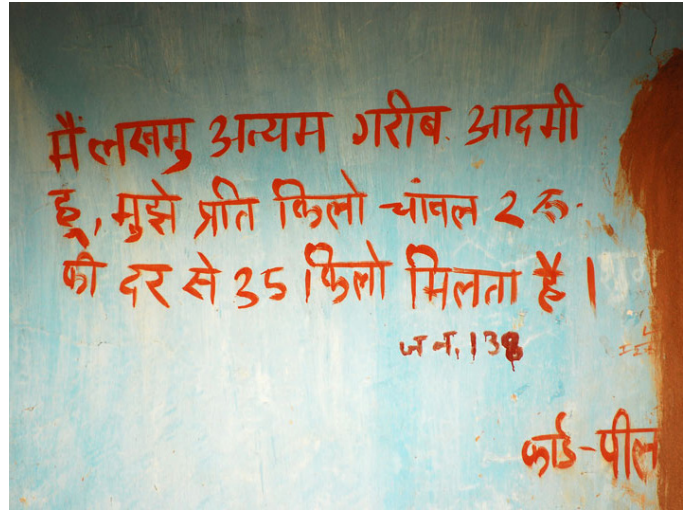 मैं लखमु अन्यम गरीब आदमी
हू, मुझे प्रति किलो चांवल 2 रु.
की दर से 35 किलो मिलता है।
ज न. 138
कार्ड-पील